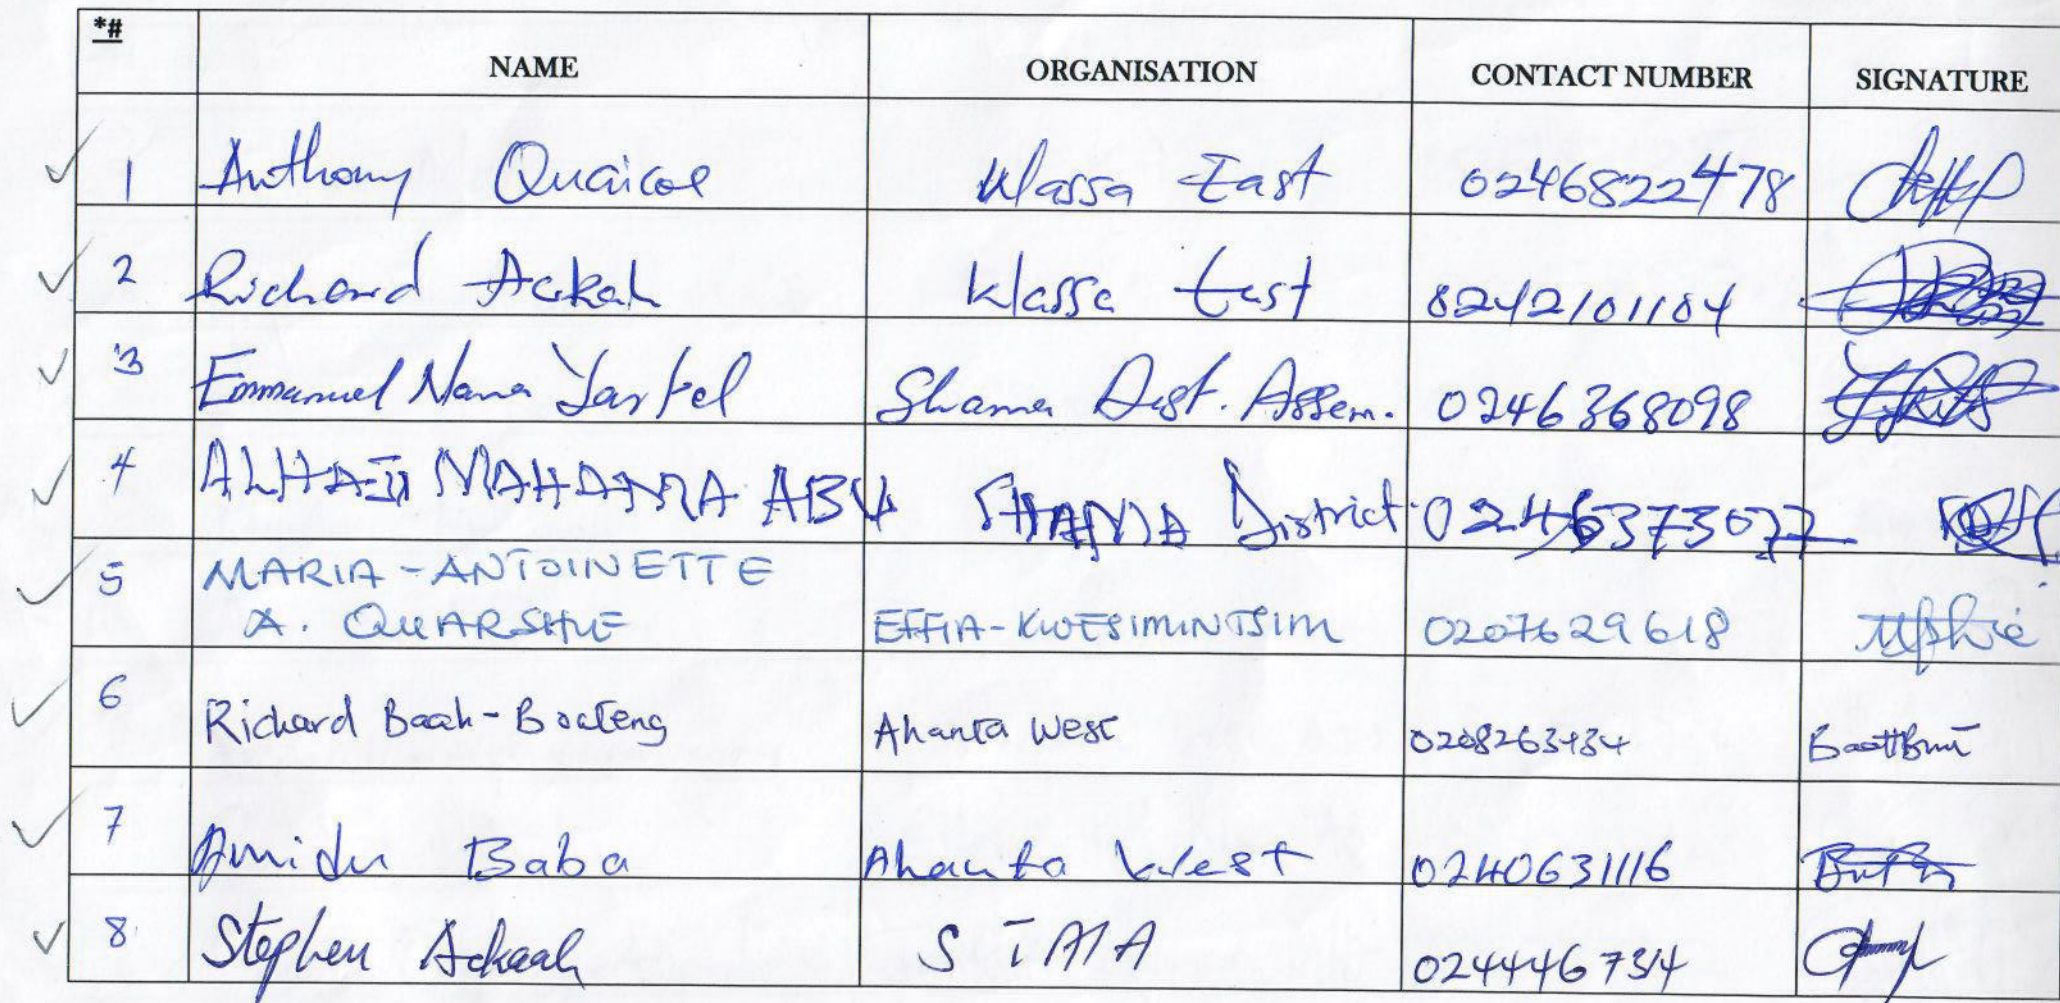 *#
NAME ORGANISATION CONTACT NUMBER SIGNATURE
1 Anthony Quaicoe Wassa East 0246822478
2 Richard Ackah Wassa East 0242101104
3 Emmanuel Nana Shama Dist. Assem. 0246368098
4 ALHAJI MAHAMA ABU SHAMA District 0246373077
5 MARIA-ANTOINETTE
A. QUARSHIE EFFIA-KWESIMINTSIM 0207629618
6 Richard Baah-Boateng Ahanta West
7 Amidu Baba Ahanta West 0240631116
8 Stephen Ackaah STMA 0244446734